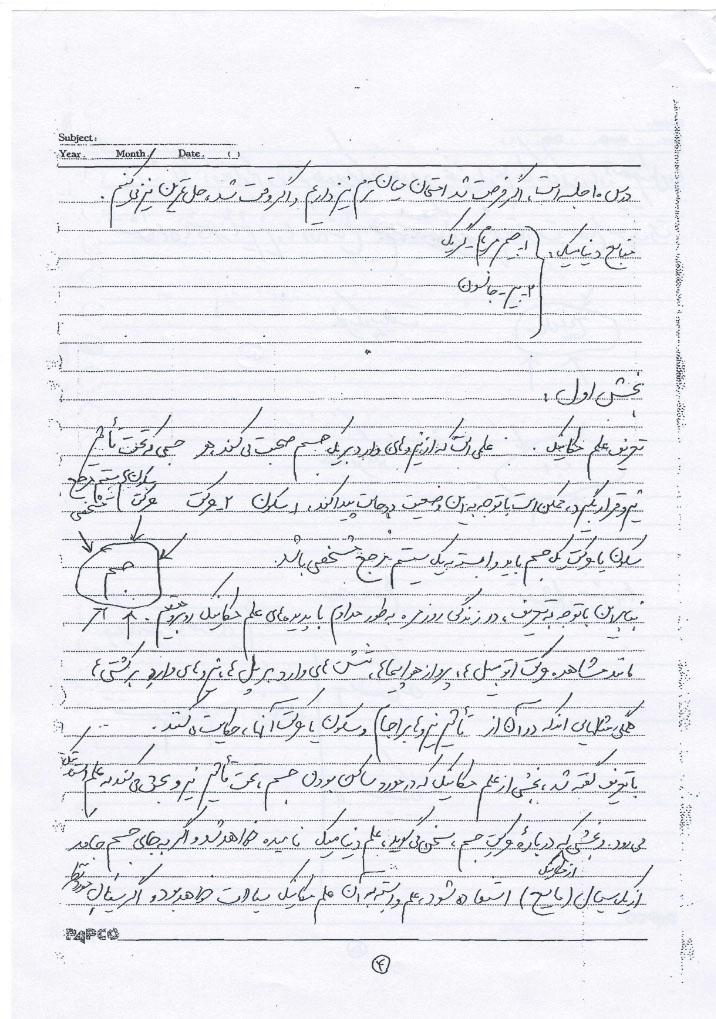 Subject:
Year. Month/ Date. ( )
درس ۱۰ جلسه است، اگر فرصت شد امتحان میان ترم نیز داریم و اگر وقت شد، حل تمرین نیز می‌کنیم.
منابع دینامیک:
۱- جسم مریام - کریگ
۲- بیر - جانسون
بخش اول:
تعریف علم مکانیک. علمی است که از نیروهای وارد بر یک جسم صحبت می‌کند، هر جسمی که تحت تأثیر
نیرو قرار بگیرد، ممکن است با توجه به این وضعیت دو حالت پیدا کند، ۱- سکون ۲- حرکت
سکون یا حرکت یک جسم باید وابسته به یک سیستم مرجع مشخصی باشد.
جسم
بنابراین با توجه به تعریف، در زندگی روزمره به طور مداوم با پدیده‌های علم مکانیک روبرو هستیم.
مانند مشاهده حرکت اتومبیل‌ها، پرواز هواپیماها، تنش‌های وارد بر پل‌ها، نیروهای وارد بر کشتی‌ها
همگی مثالهایی اند که در آن از تأثیر نیروها بر اجسام و سکون یا حرکت آنها، حکایت می‌کنند.
با تعریف گفته شد، بخشی از علم مکانیک که در مورد ساکن بودن جسم، تحت تأثیر نیرو بحث می‌کند به علم استاتیک
می‌رود. و بخشی که درباره حرکت جسم، سخن می‌گوید، علم دینامیک نامیده خواهد شد و اگر به جای جسم جامد
از یک سیال (مایع) استفاده شود، علم وابسته به آن علم مکانیک سیالات خواهد بود و اگر سیال
PAPCO
۴